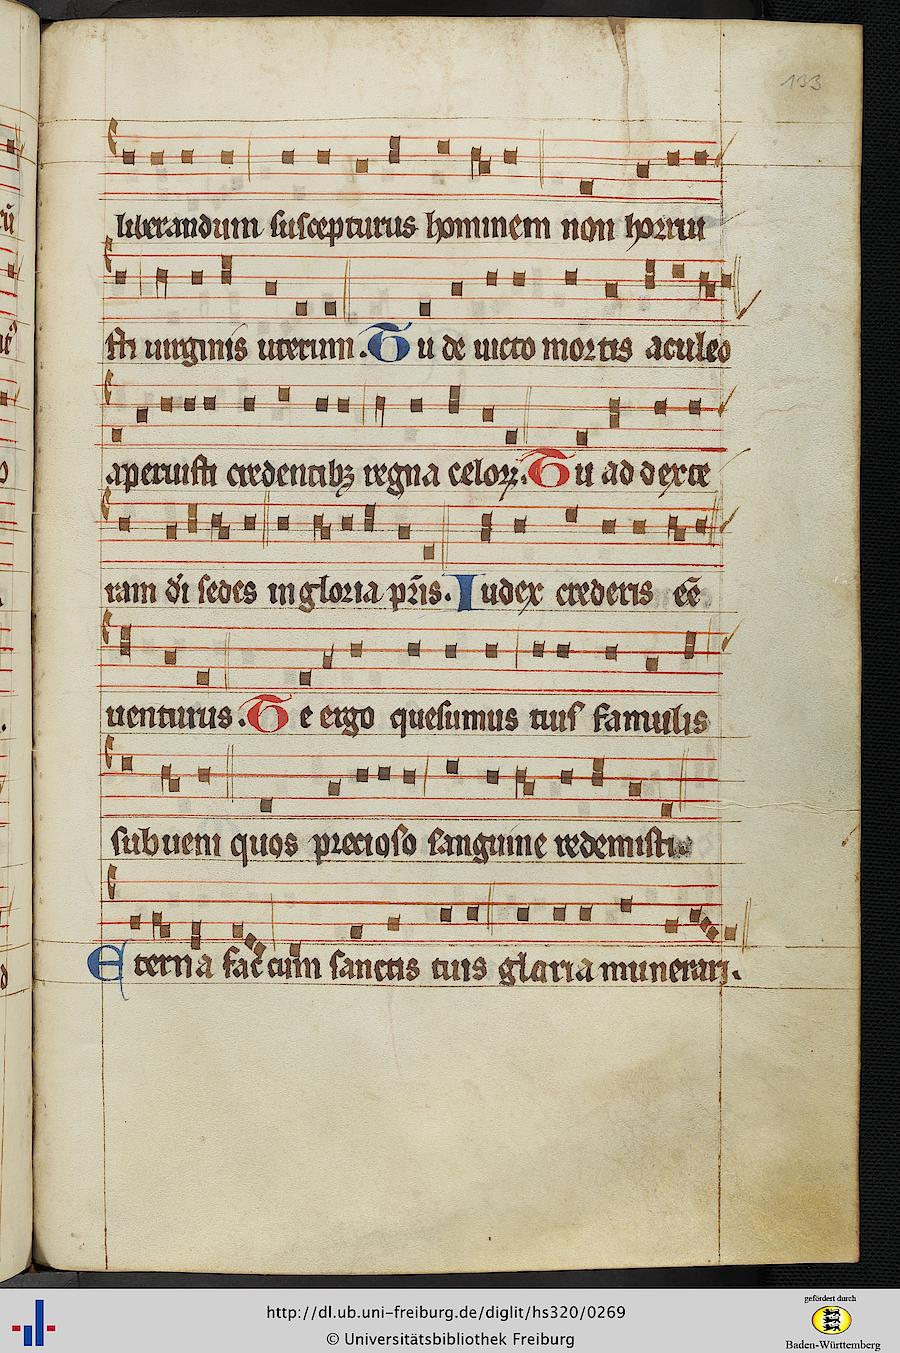 133
liberandum suscepturus hominem non horrui
sti uirginis uterum. Tu de uicto mortis aculeo
aperuisti credentibꝫ regna celoꝝ. Tu ad dexte
ram dī sedes in gloria pr̄is. Iudex crederis eē
uenturus. Te ergo quesumus tuis famulis
subueni quos precioso sanguine redemisti.
Eterna fac cum sanctis tuis gloria munerari.
http://dl.ub.uni-freiburg.de/diglit/hs320/0269
© Universitätsbibliothek Freiburg
gefördert durch
Baden-Württemberg